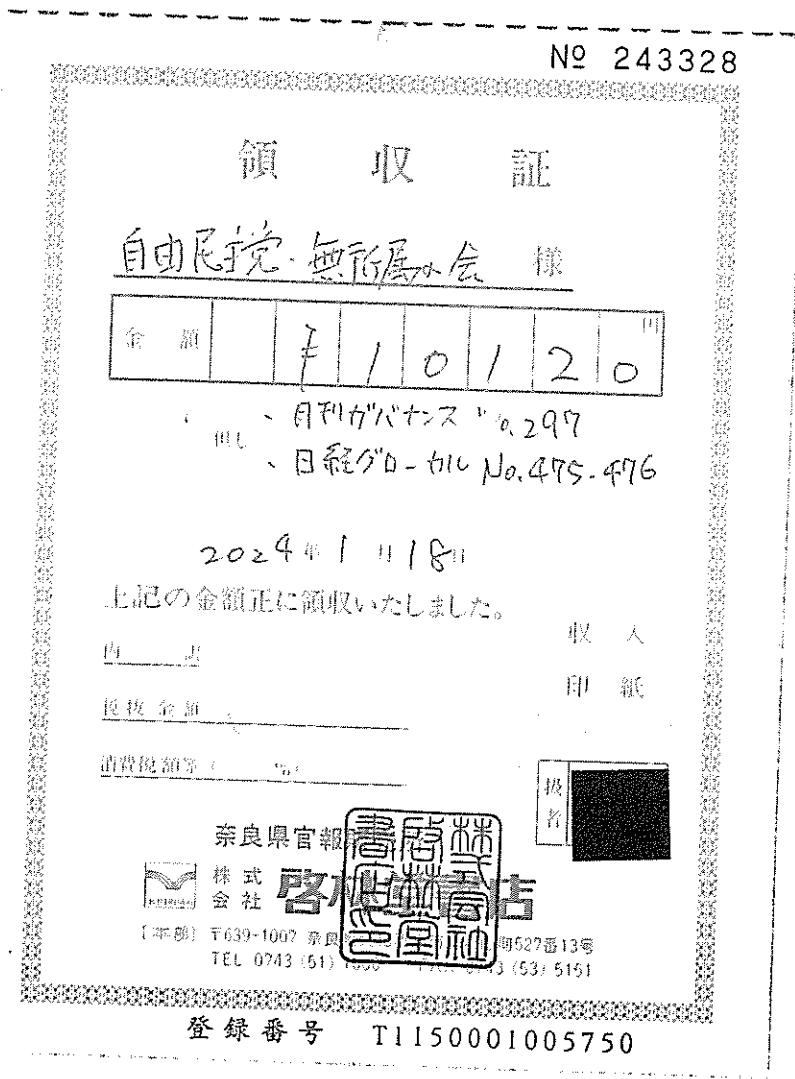 № 243328
領収証
自由民主党・無所属の会 様
金額 ¥10120 円
但し 、月刊ガバナンス No.297
、日経グローカル No.475-476
2024年1月18日
上記の金額正に領収いたしました。
収入
印紙
内訳
税抜金額
消費税額等( %)
扱者
奈良県官報
株式会社 啓林堂書店
株式会社啓林堂書店印
KEIRINDO
【本部】 〒639-1007 奈良 町527番13号
TEL 0743 (51) (53) 5151
登録番号 T1150001005750